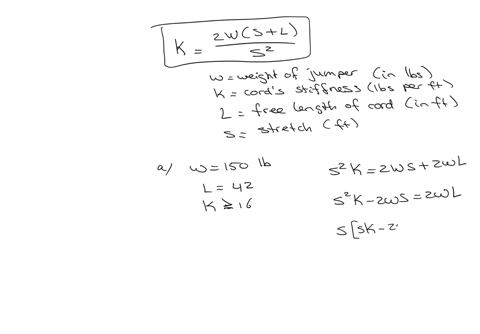 K = 2W(S+L) / S²
W = weight of jumper (in lbs)
K = cord's stiffness (lbs per ft)
L = free length of cord (in ft)
S = stretch (ft)
a/ W = 150 lb
L = 42
K ≥ 16
S²K = 2WS + 2WL
S²K - 2WS = 2WL
S[SK - 2